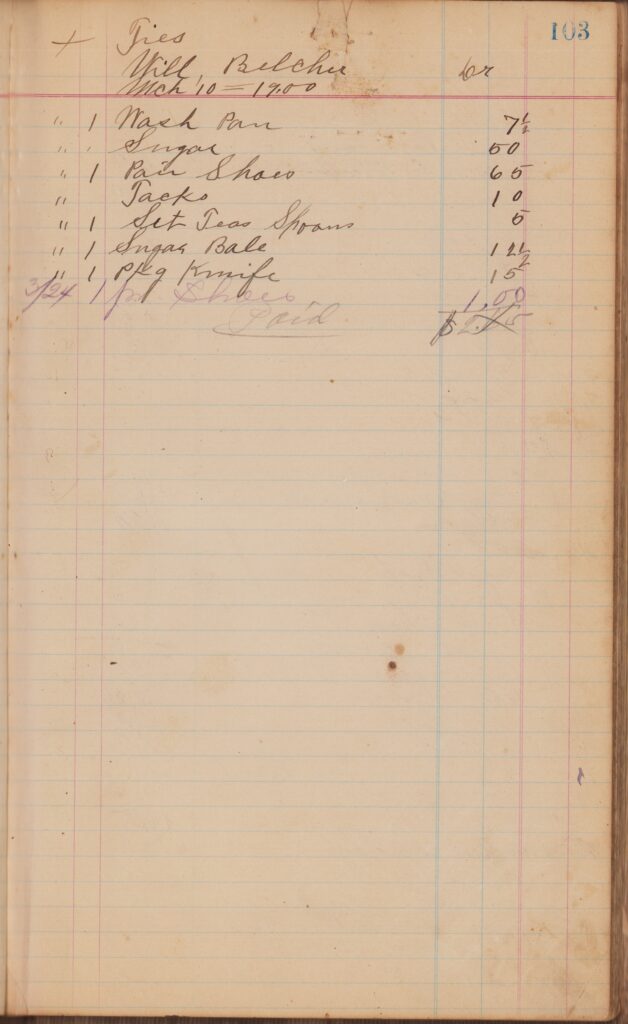 103
+ Ties
Will Belcher Dr
Mch 10 = 1900
" 1 Wash Pan 7½
" " Sugar 50
" 1 Pair Shoes 65
" Tacks 10
" 1 Set Teas Spoons 5
" 1 Sugar Bale 12½
" 1 Pkg Knife 15
3/24 1 pr. Shoes 1,00
Paid.